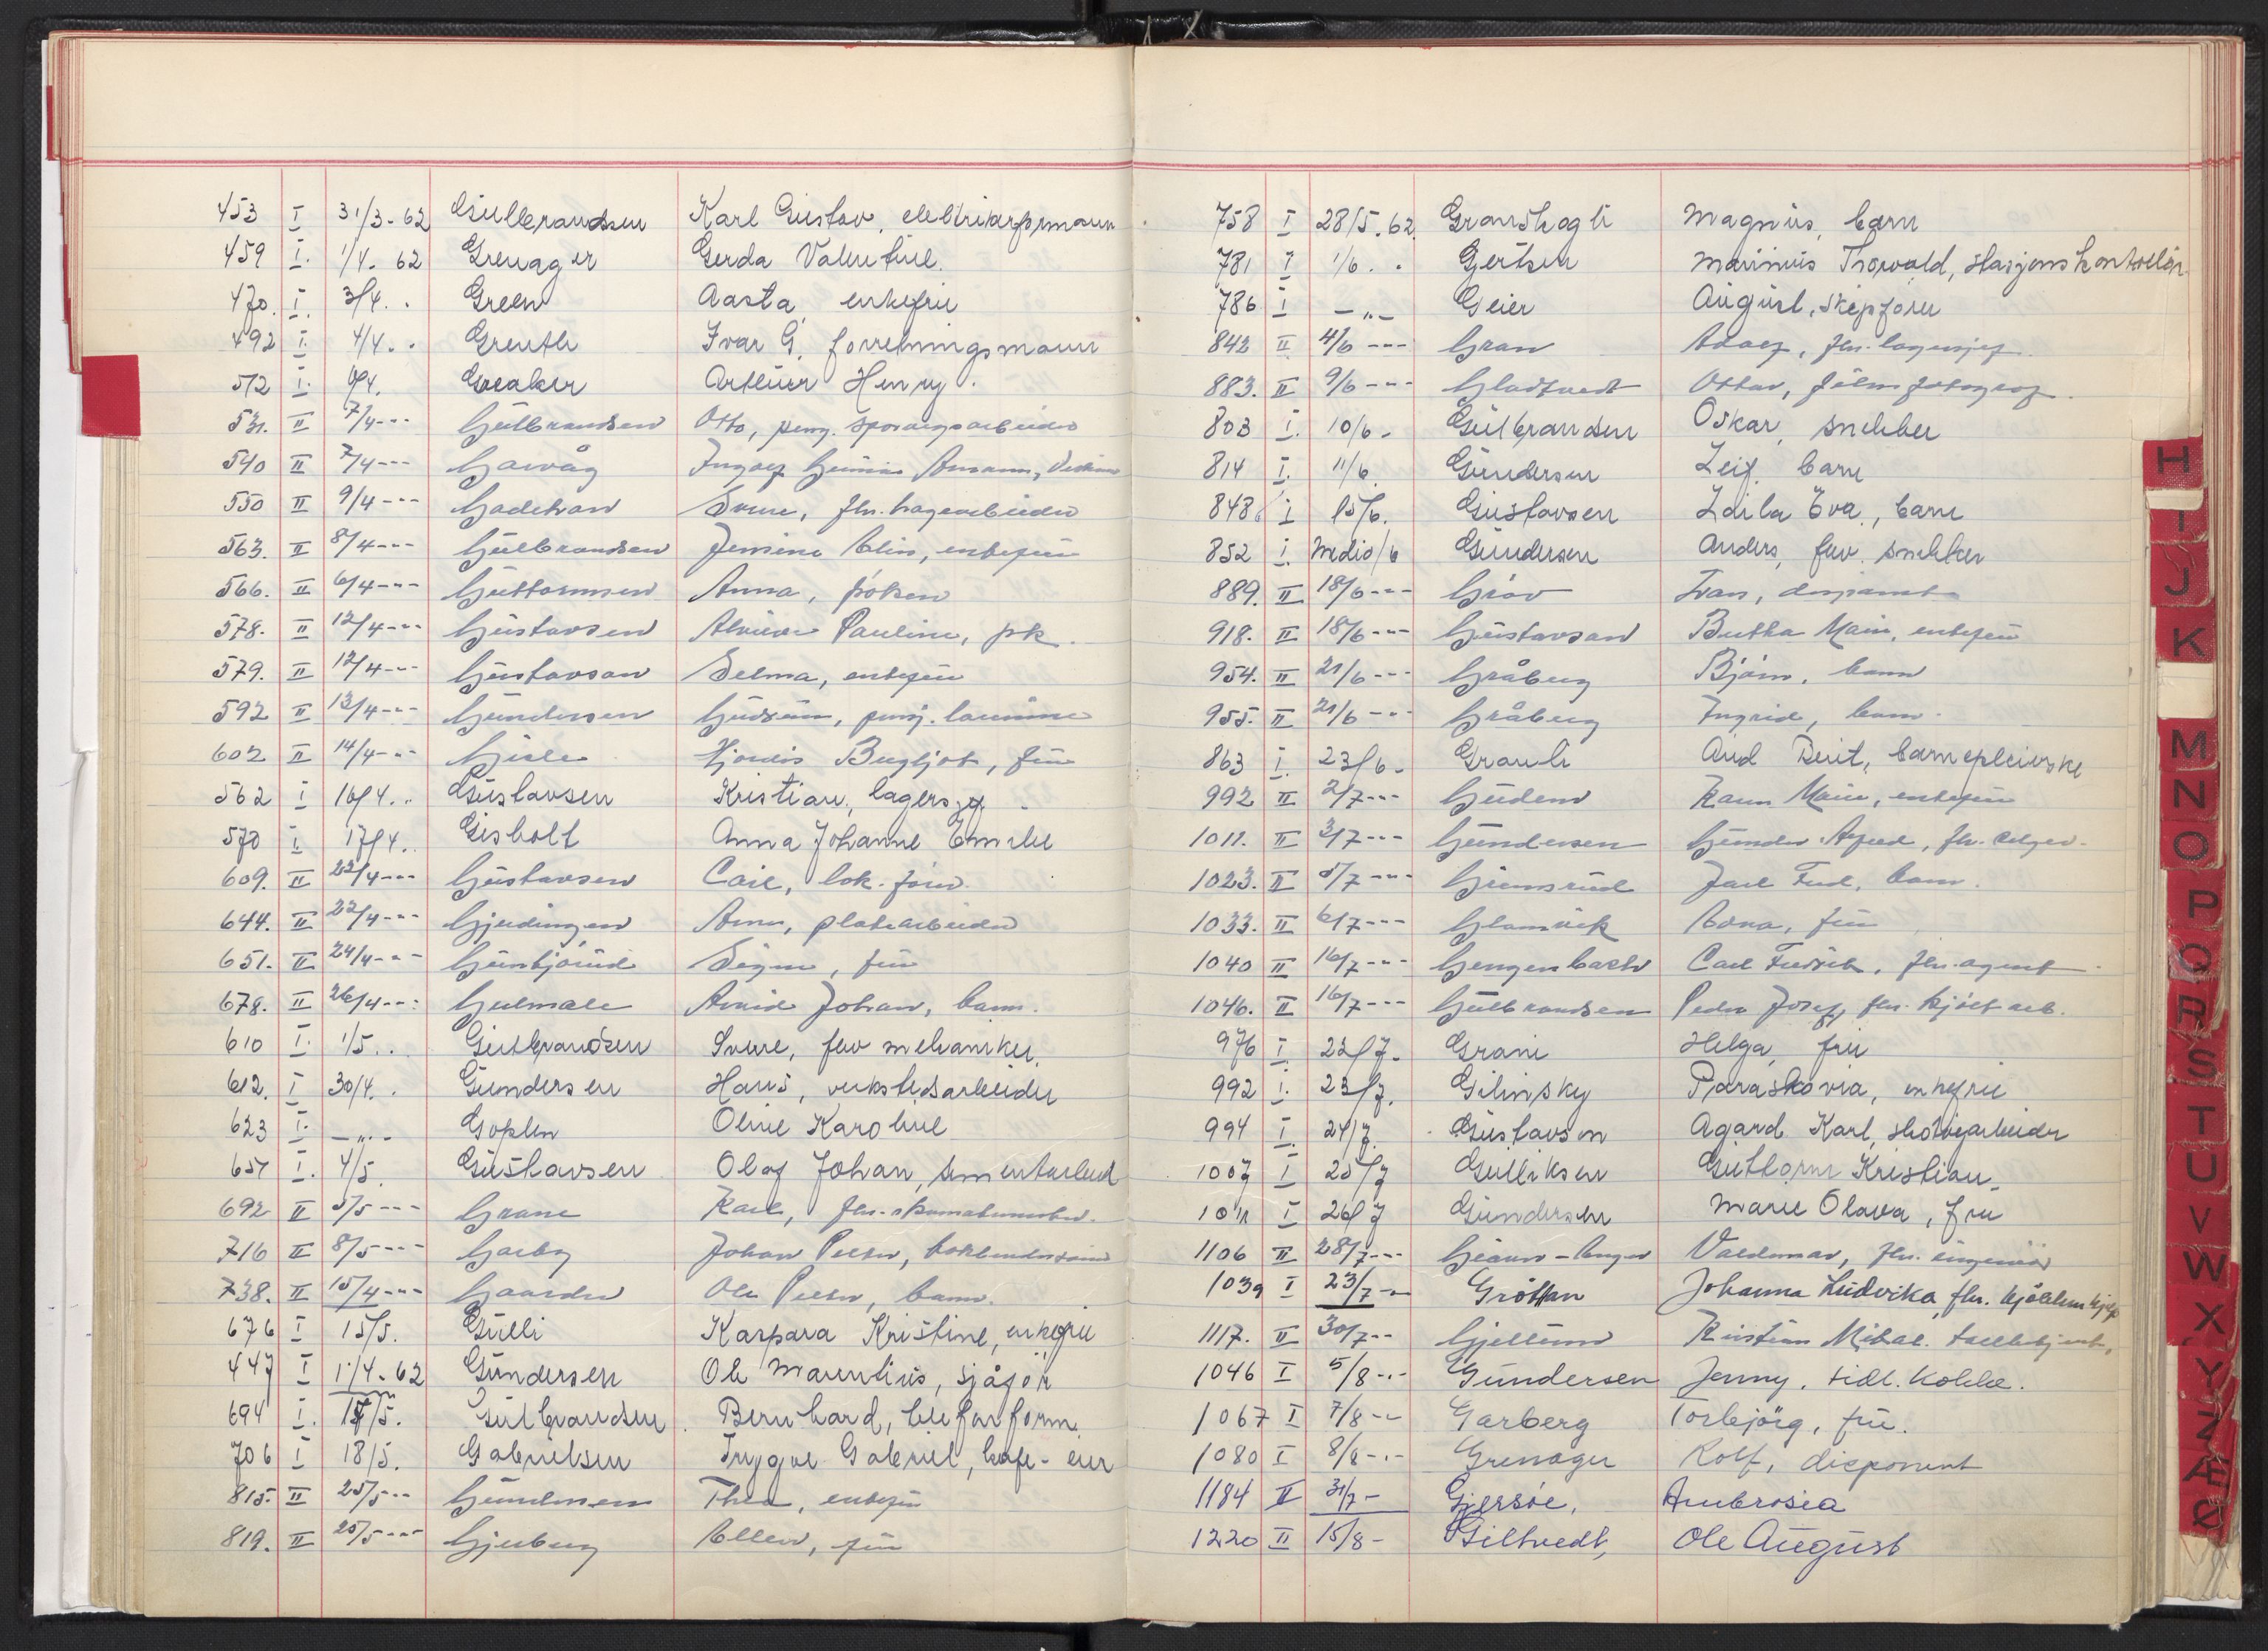 453 I 31/3-62 Gulbrandsen Karl Gustav, elektrikerformann
459 I. 1/4-62 Grenager Gerda Valentine.
470. I. 3/4. . Green Aasta, enkefru
492 I. 4/4. . Greuth Ivar G. forretningsmann
512 I. 6/4. Greaker Arthur Henry.
531. II 7/4 --- Gulbrandsen Otto, pens. sporveisarbeider
540 II 7/4 --- Garvåg Ingolf
550 II 9/4 --- Gadetran Sverre, fhv. hagearbeider
563. II 8/4 --- Gulbrandsen Jensine Elin, enkefru
566. II 6/4 --- Guttormsen Anna, frøken
578. II 12/4 --- Gustavsen Alvilde Pauline, frk.
579. II 12/4 --- Gustavson Selma, enkefru
592 II 13/4 --- Gundersen Gudrun, pensj. lærerinne
602 II 14/4 --- Gisle Hjørdis Bergljot, fru
562 I 16/4 .. Gustavsen Kristian, lagersjef
570 I. 17/4 .. Gisholt Anna Johanne Emilie
609. II 22/4 --- Gustavsen Carl, lok. fører
644. II 22/4 --- Gjerdingen Arne, platearbeider
651. II 24/4 --- Gunbjørud Signe, fru
678. II 26/4 --- Gulmale Arvid Johan, barn.
610 I. 1/5 .. Gulbrandsen Sverre, fhv mekaniker.
612. I 30/4. . Gundersen Hans, verkstedsarbeider
623 I. -"- Goplen Oline Karoline
651 I. 4/5. Gustavsen Olaf Johan, sementarbeid
692 II 5/5 --- Grane Karl, fhv.
716 II 8/5 --- Garby Johan Peter,
738. II 15/4 --- Gaarder Ole Peter, barn.
676 I 15/5. Gulli Kaspara Kristine, enkefru
447 I 1/4-62 Gundersen Ole Marentius, sjåfør
694 I. 15/5. Gulbrandsen Bernhard, telefonform.
706 I 18/5. Gabrielsen Trygve Gabriel, kafe-eier
815. II 25/5 -- Gundersen Thea, enkefru
819. II 25/5 --- Gjerberg Ellen, fru
758 I 28/5.62. Granskogli Magnus, barn
781 I 1/6 . . Gertsen Marinius Thorvald, stasjonskontrollør
786 I -"- Geier August, skipsfører
842 II 4/6 --- Gran Adolf, fhv. lagersjef
883. II 9/6 --- Gladtvedt Ottar, filmfotograf.
803 I. 10/6 - Gulbrandsen Oskar, snekker
814 I. 11/6. Gundersen Leif, barn
848 I 15/6. Gustavsen Laila Eva, barn
852 I. Medio/6 Gundersen Anders, fhv. snekker
889. II 18/6 --- Grøv Ivar, disponent
918. II 18/6 --- Gustavson Bertha Marie, enkefru
954. II 21/6 --- Gråberg Bjørn, barn
955. II 21/6 --- Gråberg Ingrid, barn.
863 I. 23/6 - Granli Aud Berit, barnepleierske
992 II 2/7 --- Gudem Karen Marie, enkefru
1011. II 3/7 --- Gundersen Gunder Alfred, fhv. selger.
1023. II 5/7 --- Grimsrud Jarl Fred, barn.
1033. II 6/7 --- Glamvik Edna, fru
1040 II 16/7 --- Gengenbach Carl Fredrik, fhv. agent
1046. II 16/7 --- Gulbrandsen Peder Josef, fhv. kjølearb.
976 I 23/7 - Grani Helga, fru
992 I. 23/7. Gilinsky Paraskovia, enkefru
994 I. 24/7. Gustavson Agard Karl, skotøyarbeider
1007 I 25/7 Gulliksen Guttorm Kristian.
1011 I 26/7 Gundersen Marie Olava, fru
1106 II 28/7 --- Valdemar, fhv. ingeniør
1039 I 23/7 -- Grøttan Johanna Ludvika, fhv. kjøkkenhjelp
1117. II 30/7 -- Gjellum Kristian Mikal.
1046 I 5/8 -.- Gundersen Jenny, tidl. kokke.
1067 I 7/8 -- Garberg Torbjørg, fru.
1080 I 8/8 -.- Grenager Rolf, disponent
1184 II 31/7 - Gjersøe, Ambrosia
1220 II 15/8 - Giltvedt, Ole August
H
I
J
K
M
N
O
P
Q
R
S
T
U
V
W
X
Y
Z
Æ
Ø